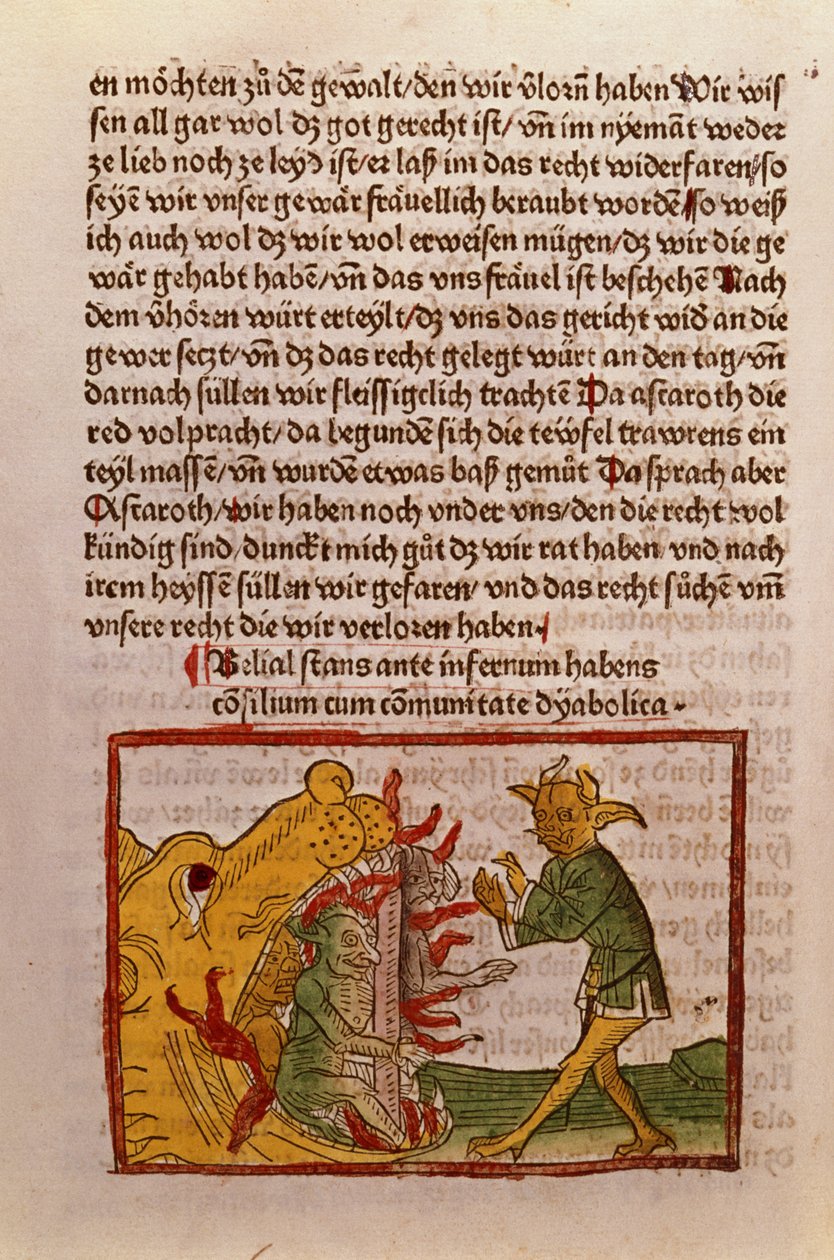 en möchten zů dē gewalt/den̄ wir v̄lorn̄ haben Wir wis
sen all gar wol dz got gerecht ist/ vn̄ im nyemāt weder
ze lieb noch ze leyd ist/er laß im das recht widerfaren/so
seyē wir vnser gewär fräuellich beraubt wordē/so weiß
ich auch wol dz wir wol erweisen mügen/dz wir die ge
wär gehabt habē/vn̄ das vns fräuel ist beschehē Nach
dem v̄hören würt erteylt/dz vns das gericht wid̄ an die
gewer seczt/vn̄ dz das recht gelegt würt an den tag/vn̄
darnach süllen wir fleissigclich trachtē Da astaroth die
red volpracht/da begundē sich die tewfel trawrens ein
teyl massē/vn̄ wurdē etwas baß gemůt Da sprach aber
Astaroth/wir haben noch vnder vns/den die recht wol
kündig sind/dunckt mich gůt dz wir rat haben/vnd nach
irem heyssē süllen wir gefaren/vnd das recht sůchē vm̄
vnsere recht die wir verloren haben.
Belial stans ante infernum habens
cōsilium cum cōmunitate dyabolica.